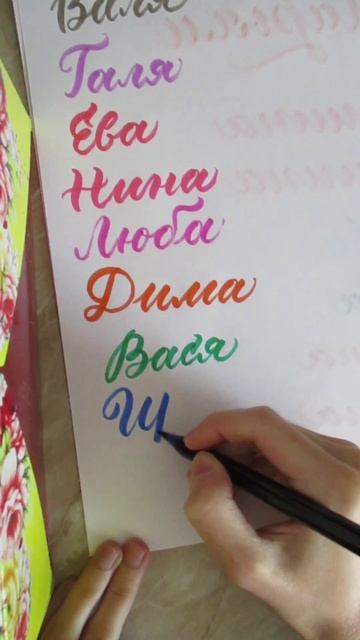 Валя
Галя
Ева
Нина
Люба
Дима
Вася